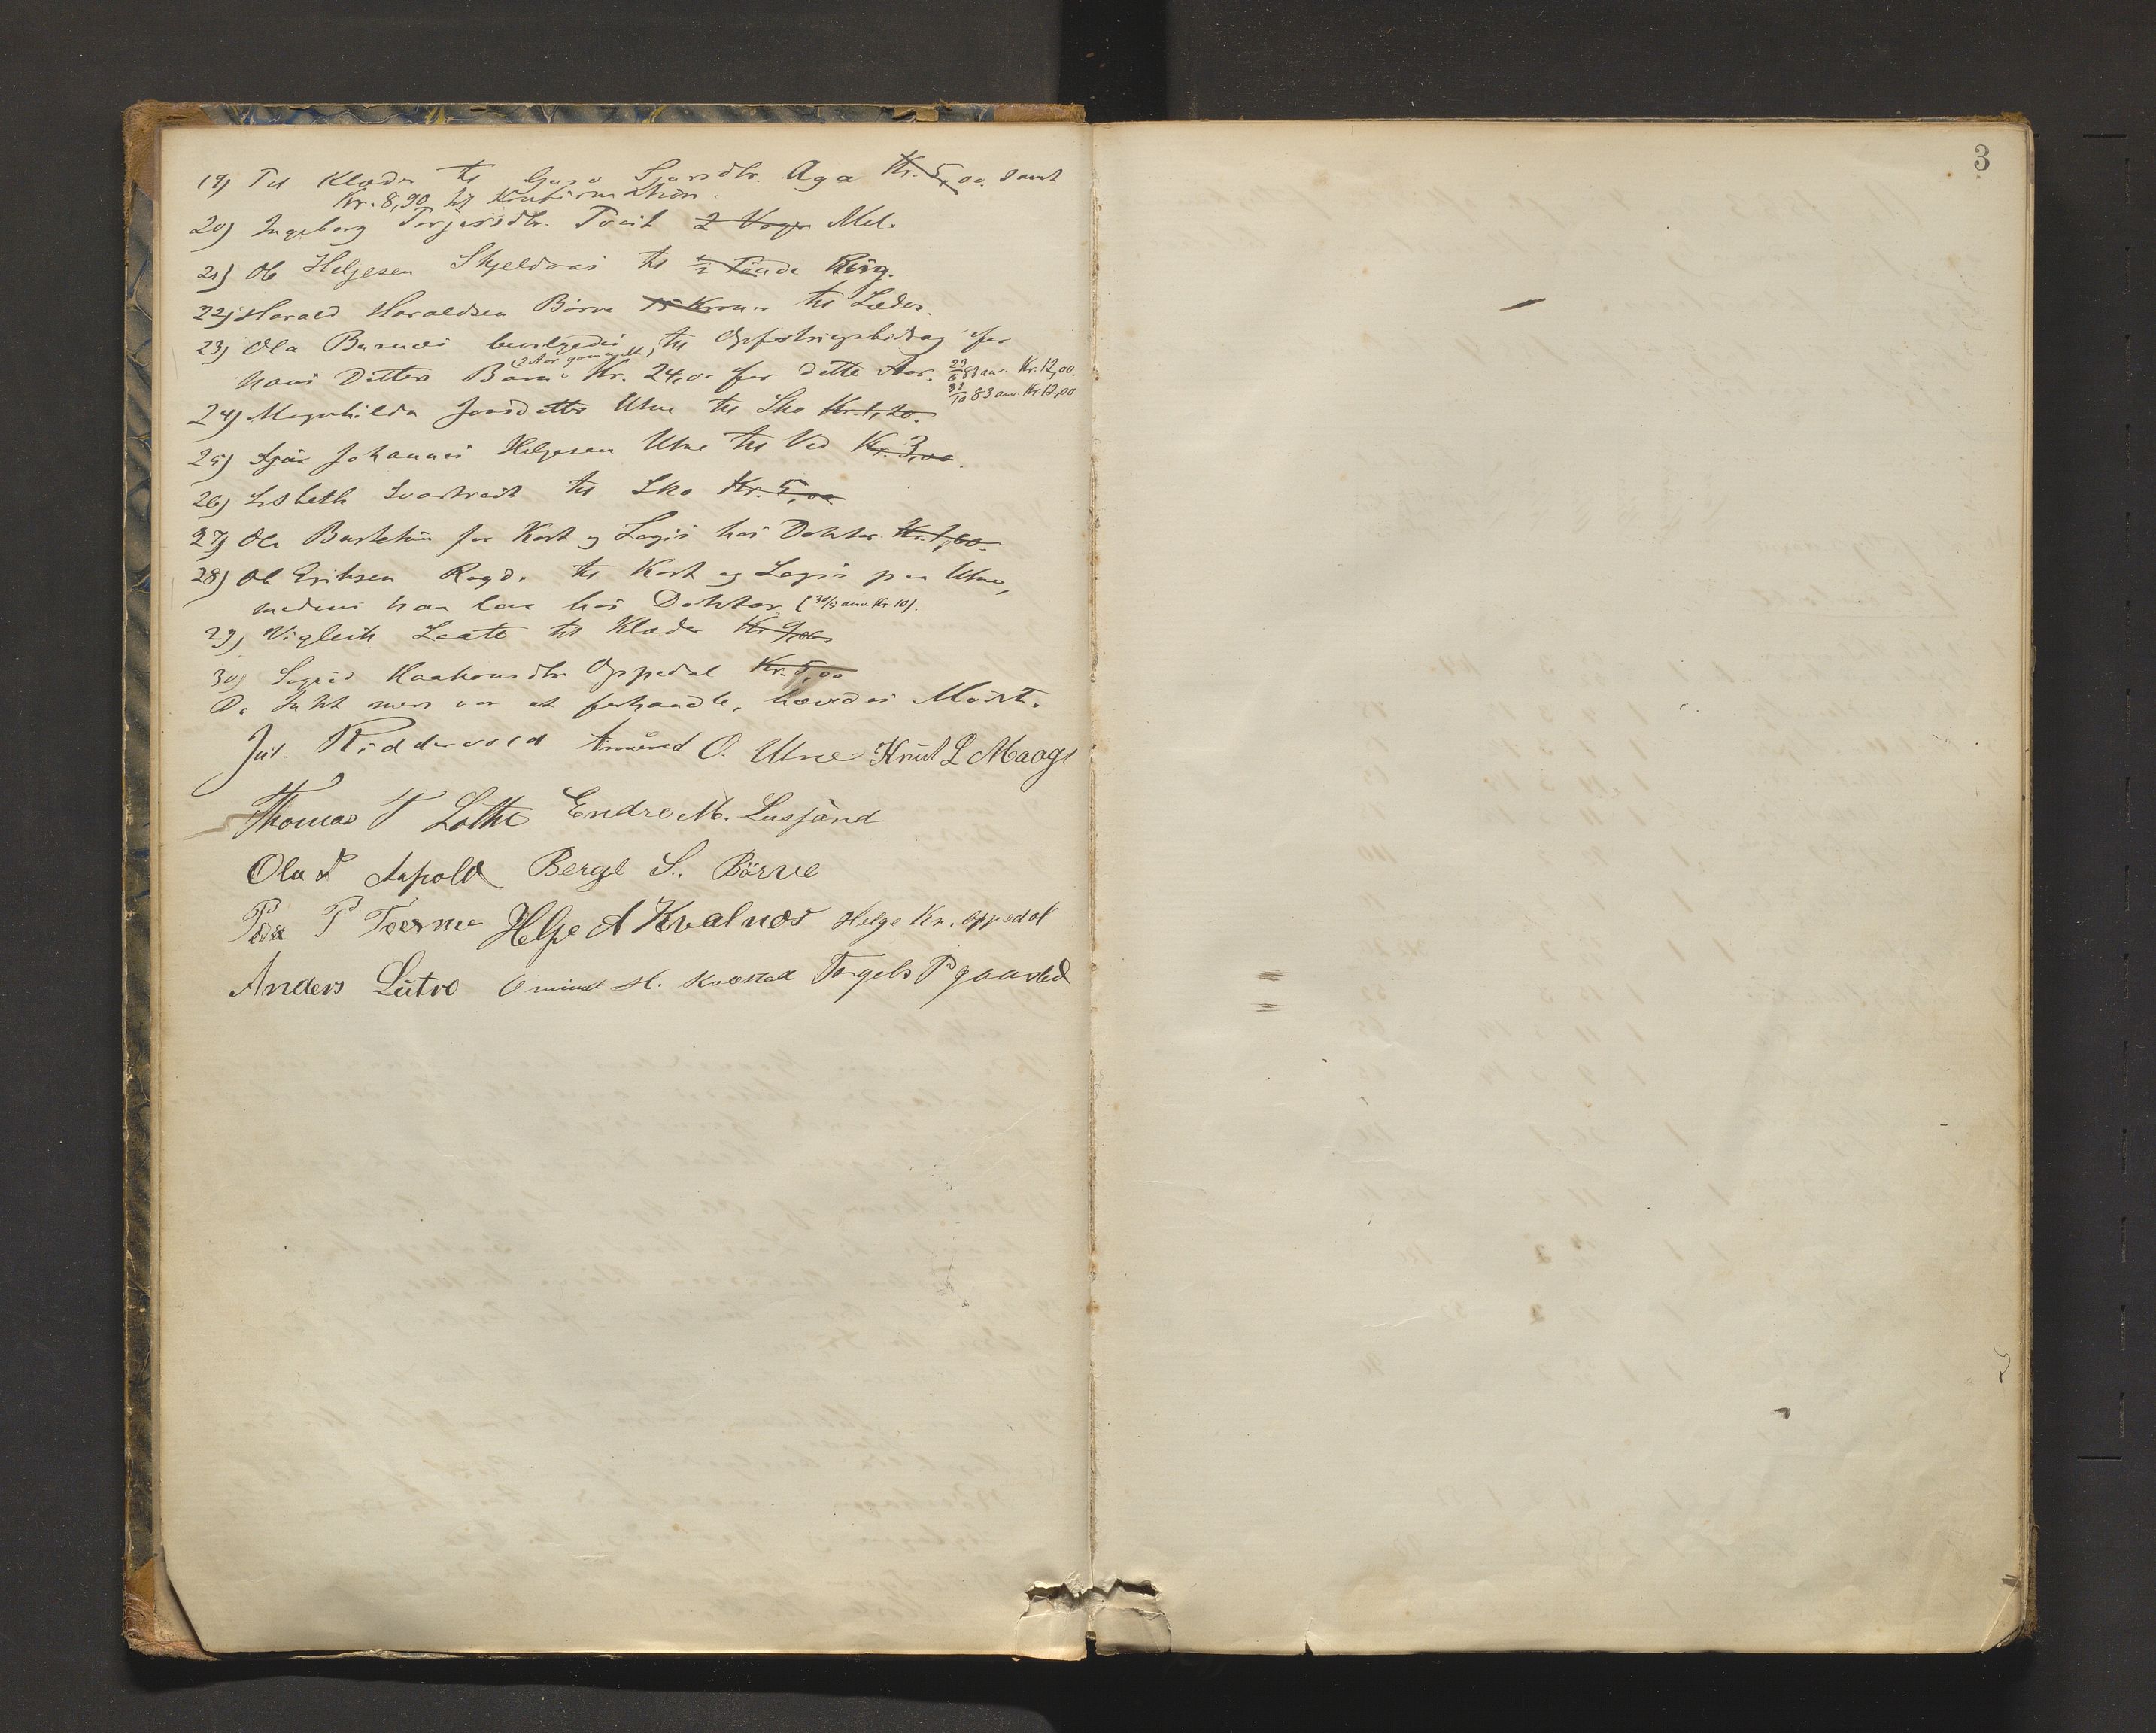 19) Til Klæder til Guro Sjursdtr. Aga Kr. 5,00. samt
Kr. 8,90 til Konfirmation.
20) Ingeborg Torjersdtr. Tveit 2 Voger Mel.
21) Ole Helgesen Skjeldaas til 1/2 Tønde Rug.
22) Harald Haraldsen Börve 15 Kroner til Læder.
23) Ola Barnæs bevilgedes til Opfostringsbidrag for
(2 Aar gammelt)
hans Datters Barn Kr. 24,00 for dette Aar. 23/6 83 anv. Kr. 12,00.
31/10 83 anv. Kr 12,00
24) Magnhilda Jonsdatter Utne til Sko Kr. 1,20.
25) Johannes Helgesen Utne til Ved Kr. 3,00.
26) Lisbeth Svartveit til Sko Kr. 5,00
27) Ole for Kost og Logis hos Doktor Kr. 1,60.
28) Ole Eriksen Ragde til Kost og Logis paa Utne,
medens han laa hos Doktor. (30/5 anv. Kr. 10).
29) Vigleik Laate til Klæder Kr 9,00
30) Sigrid Haakonsdtr Oppedal Kr. 5,00
Da Intet mere var at forhandle, hævedes Mødet.
Jul. Riddervold Amund O. Utne Knut L Maage
Thomas T Lothe Endre M. Lusjånd
Ola Aspold Berge S. Börve
Peder P Tverne Helge A Kvalnæs Helge Kn. Oppedal
Anders Lutro Omund H. Kvæstad Torgels P Jaastad
3